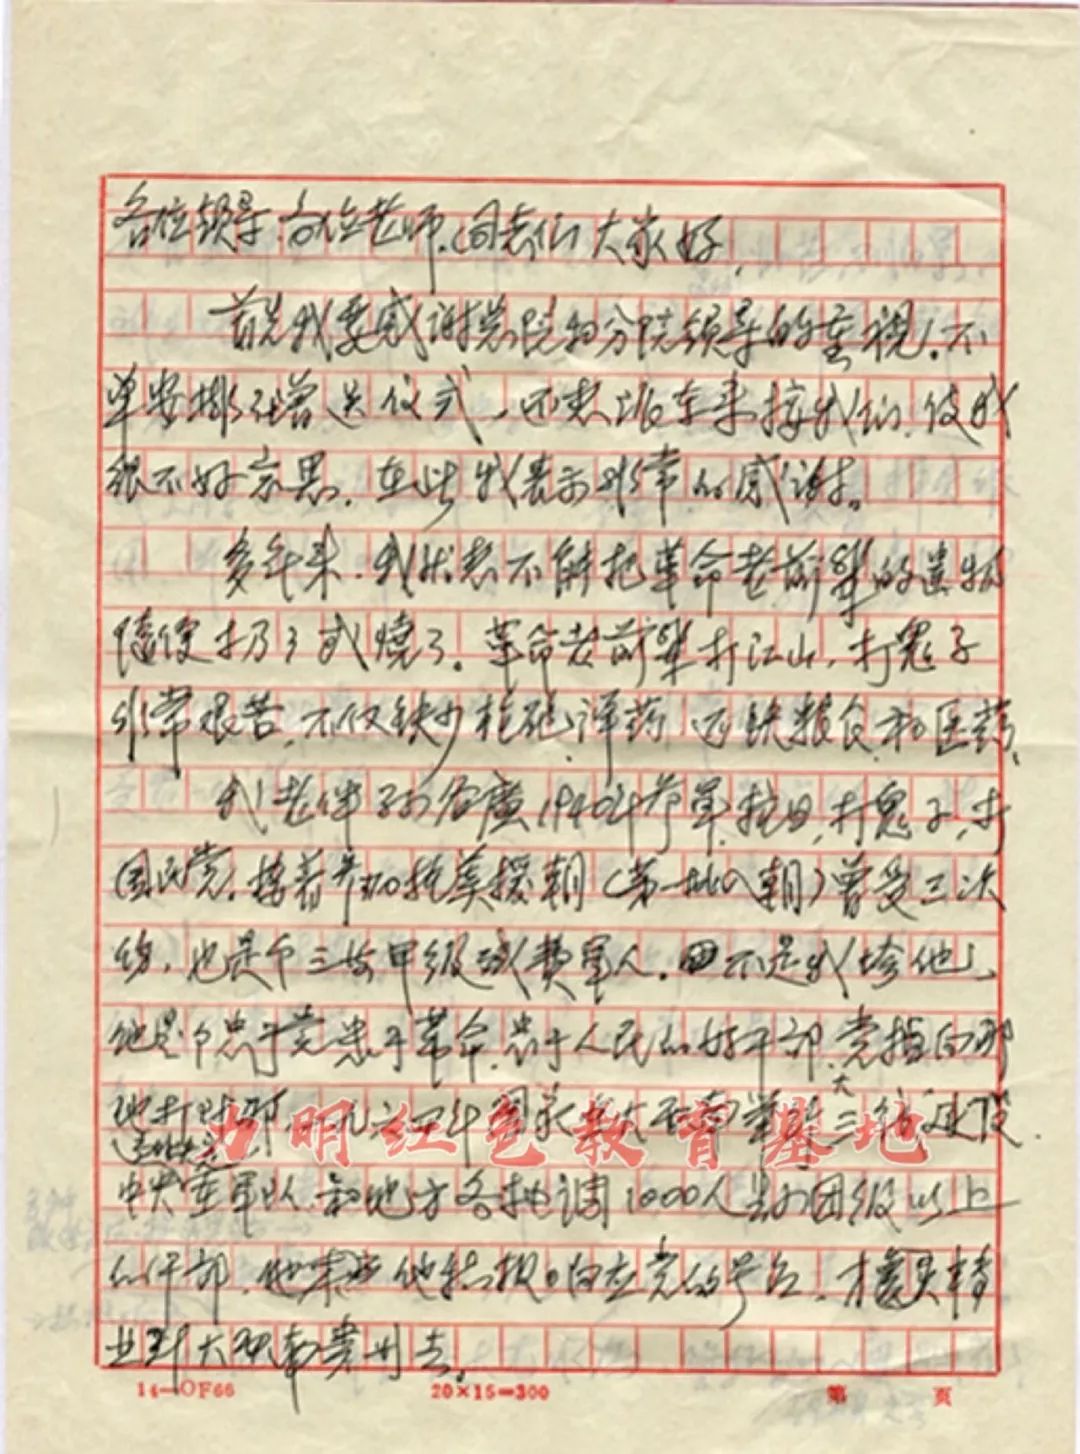 各位领导、各位老师、同志们大家好，
首先我要感谢总院和分院领导的重视。不
单安排在赠送仪式，还专派车来接我们，使我
很不好意思，在此我表示非常的感谢。
多年来，我状态不能把革命老前辈的遗物
随便扔了或烧了。革命老前辈打江山，打鬼子
非常艰苦，不仅缺少枪砲、弹药，还缺粮食和医药。
我老伴 1940年参军抗日，打鬼子，打
国民党，接着参加抗美援朝（第一批入朝）曾受三次
伤，也是个三等甲级残废军人。不是我夸他，
他是个忠于党忠于革命，忠于人民的好干部，党指向那
他打到那，一九六四年国家在大西南 大三线建设，
力明红色教育基地
中央 军队和地方各抽调1000人 团级以上
的干部，他 他积极响应党的号召，才 转
业到大西南贵州去。
14—OF66
20×15=300
第 页